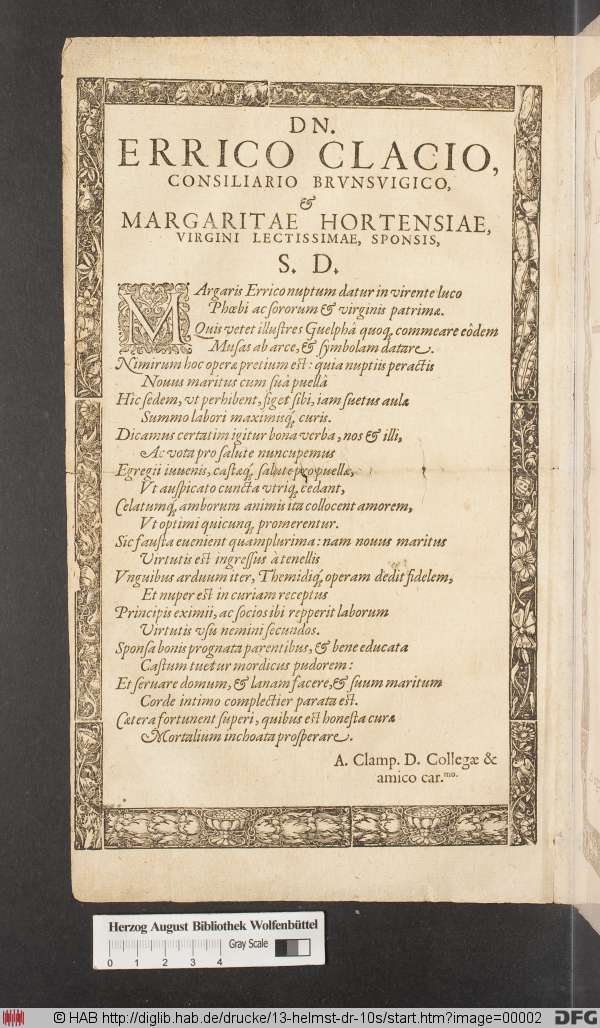 DN.
ERRICO CLACIO,
CONSILIARIO BRVNSVIGICO,
&
MARGARITAE HORTENSIAE,
VIRGINI LECTISSIMAE, SPONSIS,
S. D.
MArgaris Errico nuptum datur in virente luco
Phœbi ac sororum & virginis patrimæ.
Quis vetet illustres Guelphâ quoq; commeare eôdem
Musas ab arce, & symbolam datare.
Nimirum hoc operæ pretium est: quia nuptiis peractis
Novus maritus cum suâ puellâ
Hic sedem, vt perhibent, figet sibi, iam suetus aulæ
Summo labori maximisq; curis.
Dicamus certatim igitur bona verba, nos & illi,
Ac vota pro salute nuncupemus
Egregii iuuenis, castæq; salute pro puellæ,
Vt auspicato cuncta vtriq; cedant,
Cœlatumq; amborum animis ita collocent amorem,
Vt optimi quicunq; promerentur.
Sic fausta euenient quamplurima: nam nouus maritus
Virtutis est ingressus à tenellis
Vnguibus arduum iter, Themidiq; operam dedit fidelem,
Et nuper est in curiam receptus
Principis eximii, ac socios ibi repperit laborum
Virtutis vsu nemini secundos.
Sponsa bonis prognata parentibus, & bene educata
Castum tuetur mordicus pudorem:
Et seruare domum, & lanam facere, & suum maritum
Corde intimo complectier parata est.
Cætera fortunent superi, quibus est honesta curæ
Mortalium inchoata prosperare.
A. Clamp. D. Collegæ &
amico car.mo.
Herzog August Bibliothek Wolfenbüttel
0 1 2 3 4
Gray Scale
© HAB http://diglib.hab.de/drucke/13-helmst-dr-10s/start.htm?image=00002
DFG